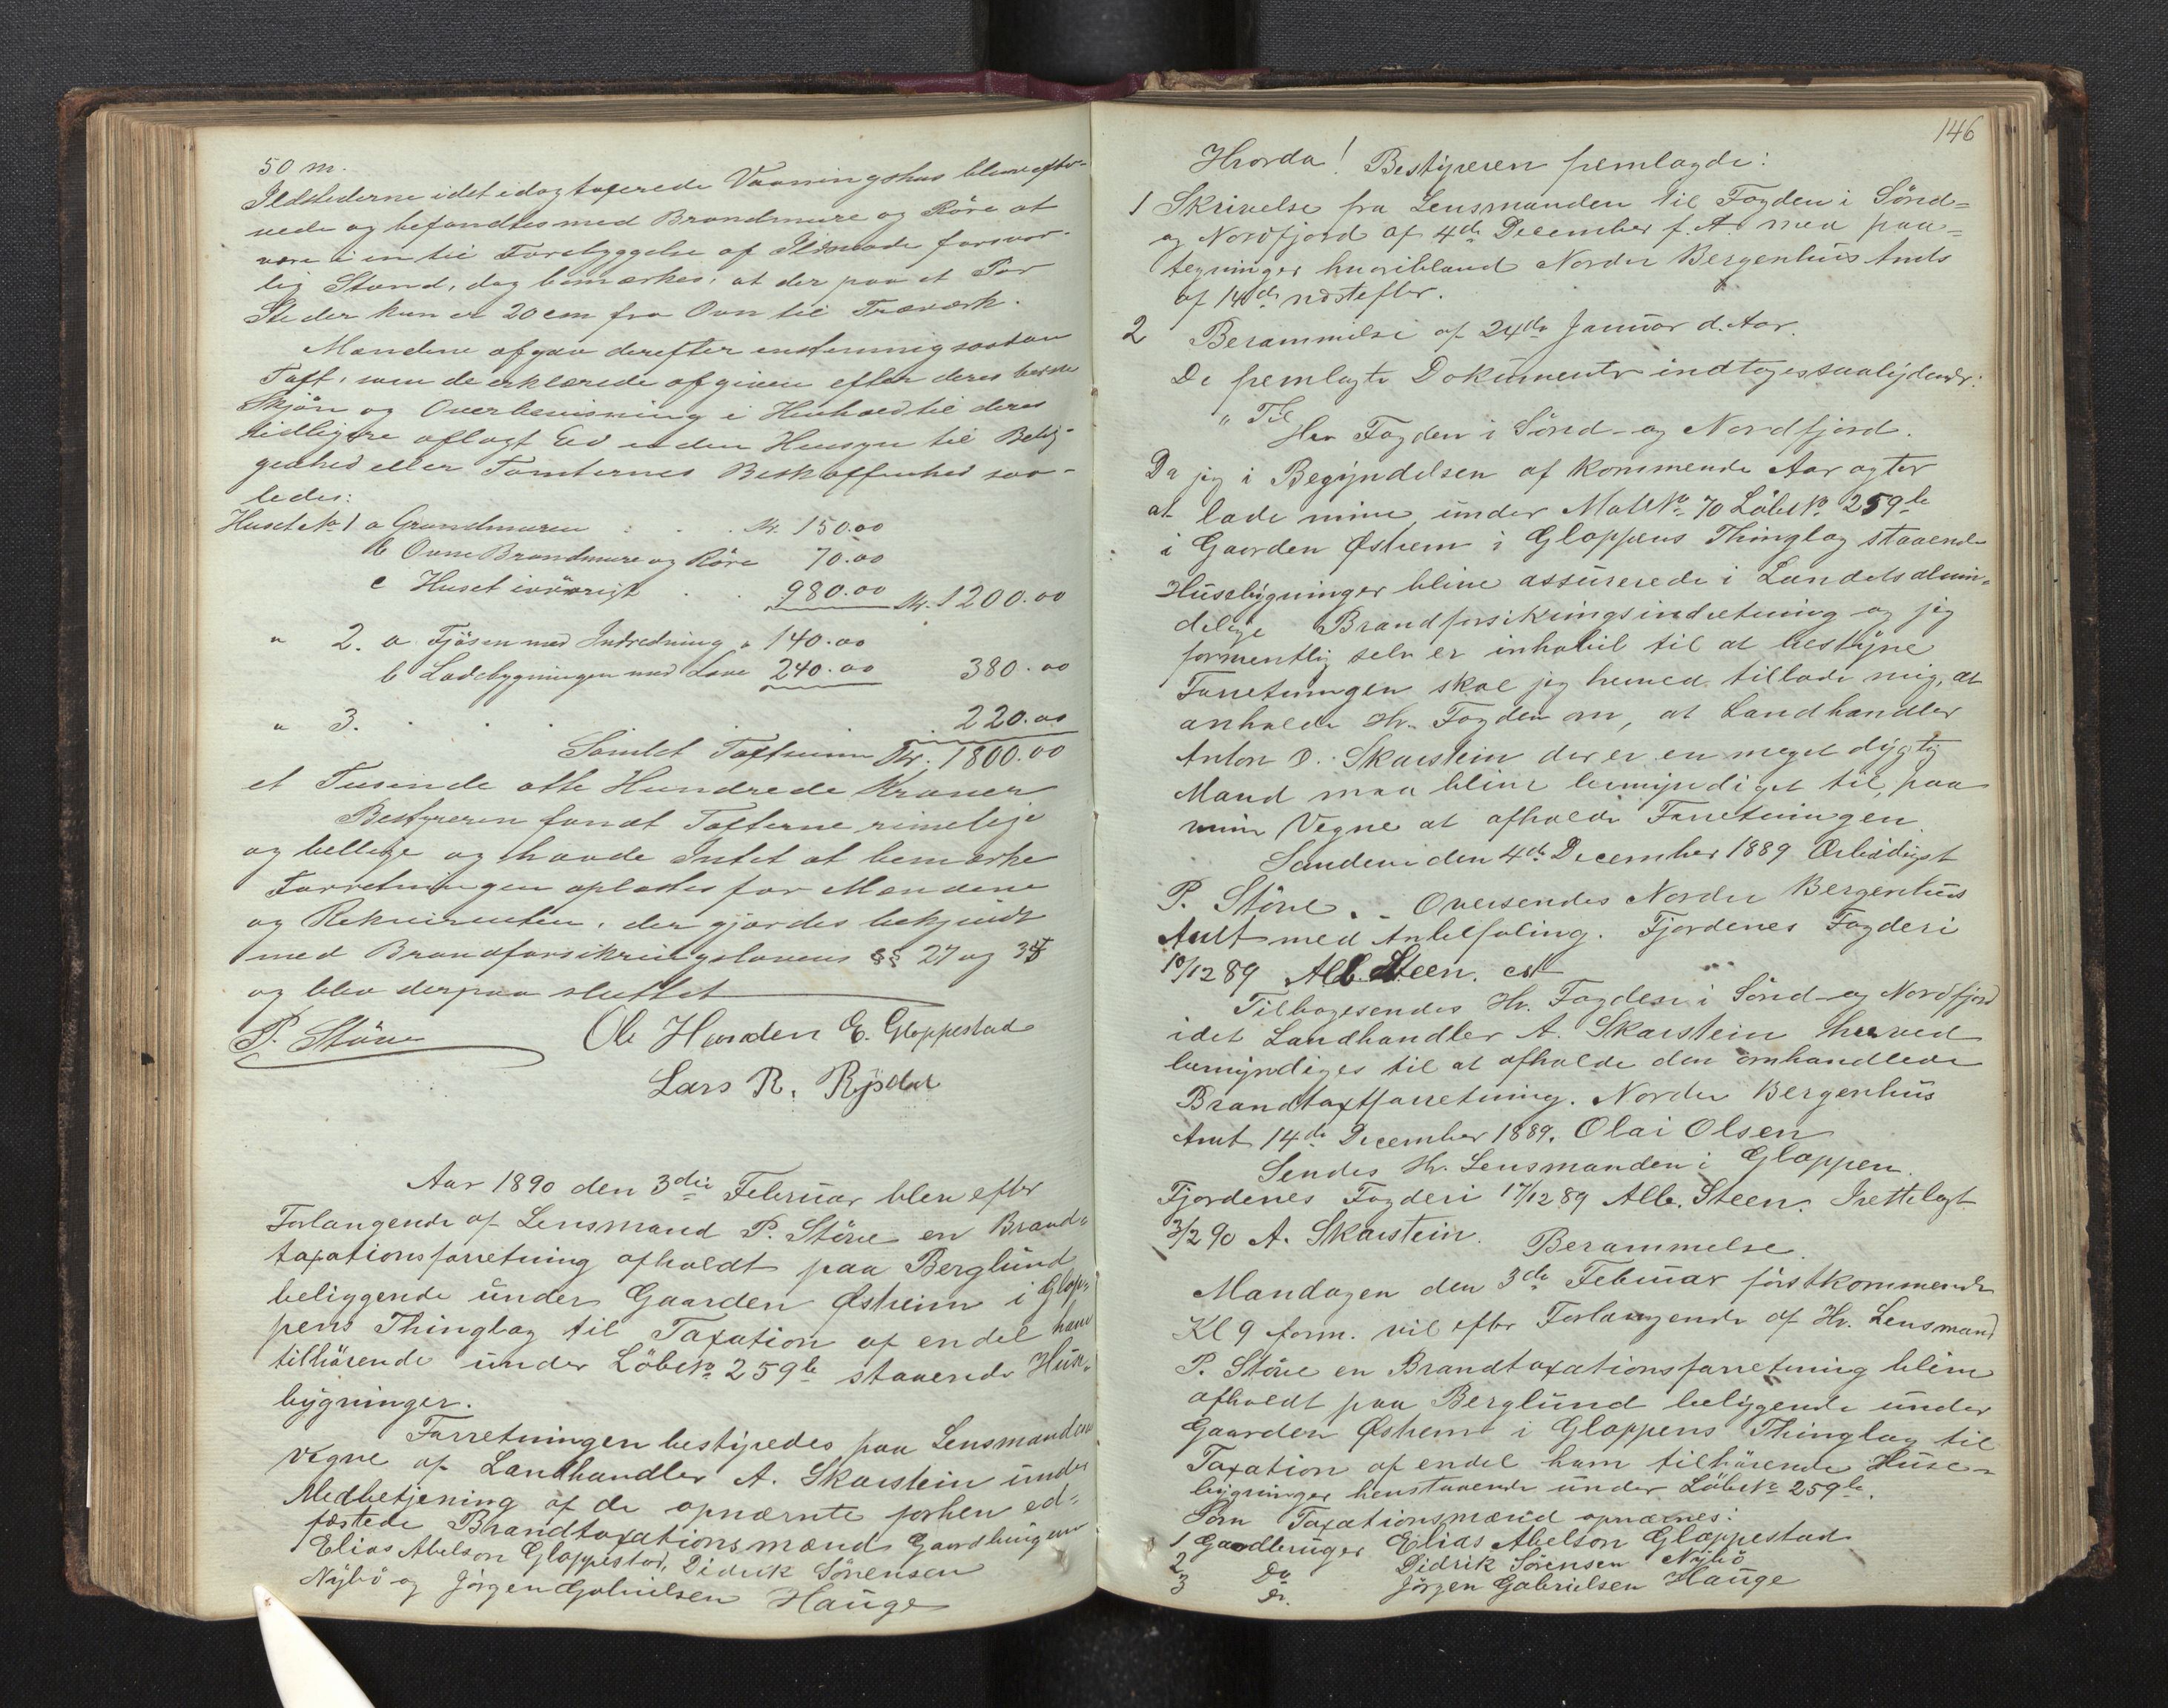 50 m.
Ildstederne i det idag taxerede Vaaningshus blev efter-
sede og befandtes med Brandmure og Röre at
være i en til Forebyggelse af Ildsvaade forsvar-
lig Stand, dog bemærkes, at der paa et Par
Steder kun er 20 cm fra Ovn til Træværk.
Mændene afgav derefter enstemmig saadan
Taxt, som de erklærede afgiven efter deres bedste
Skjön og Overbevisning i Henhold til deres
tidligere aflagt Ed uden Hensyn til Belig-
genhed eller Tomternes Beskaffenhed saa-
ledes:
Huset No 1 a Grundmuren . . . Kr. 150.00
b Ovne Brandmure og Röre 70.00
c Huset iövrigt . . 980.00 Kr. 1200.00
" 2. a Fjösen med Indredning " 140.00
b Ladebygningen med Lave 240.00 380.00
" 3. . . . 220.00
Samlet Taxtsum Kr. 1800.00
et Tusinde otte Hundrede Kroner
Bestyreren fandt Taxterne rimelige
og billige og havde Intet at bemærke
Forretningen oplæstes for Mændene
og Rekvirenten, der gjordes bekjendt
med Brandforsikringslovens §§ 27 og 35
og blev derpaa sluttet
P. Störe Ole Handen E. Gloppestad
Lars R. Rysdal
Aar 1890 den 3die Februar blev efter
Forlangende af Lensmand P. Störe en Brand-
taxationsforretning afholdt paa Berglund
beliggende under Gaarden Østhem i Glop-
pens Thinglag til Taxation af endel ham
tilhörende under Löbe No 259b staaende Huse-
bygninger.
Forretningen bestyredes paa Lensmandens
Vegne af Landhandler A. Skarstein under
Medbetjening af de opnævnte forhen ed-
fæstede Brandtaxationsmænd Gaardbrugerne
Elias Abelson Gloppestad, Didrik Sörensen
Nybö og Jörgen Gabrielsen Hauge
146
Hvorda! Bestyreren fremlagde:
1 Skrivelse fra Lensmanden til Fogden i Sönd-
og Nordfjord af 4de December f. A. med paa-
tegninger hvoriblandt Nordre Bergenhus Amts
af 14de næstefter.
2 Berammelse af 24de Januar d. Aar.
De fremlagte Dokumenter indtages saalydende:
" Til
Hr. Fogden i Sönd- og Nordfjord.
Da jeg i Begyndelsen af kommende Aar agter
at lade mine under Matr No 70 Löbe No 259b
i Gaarden Østhem i Gloppens Thinglag staaende
Husebygninger blive assurerede i Landets almin-
delige Brandforsikringsindretning og jeg
formentlig selv er inhabil til at bestyre
Forretningen skal jeg herved tillade mig, at
anholde Hr. Fogden om, at Landhandler
Anton D. Skarstein der er en meget dygtig
Mand maa blive bemyndiget til, paa
mine Vegne at afholde Forretningen.
Sandene den 4de December 1889 Ærbödigst
P. Störe. - Oversendes Nordre Bergenhus
Amt med Anbefaling. Fjordenes Fogderi
10/12 89 Alb. Steen. cst
Tilbagesendes Hr. Fogden i Sönd- og Nordfjord
idet Landhandler A. Skarstein herved
bemyndiges til at afholde den omhandlede
Brandtaxtforretning. Nordre Bergenhus
Amt 14de December 1889. Olai Olsen
Sendes Hr. Lensmanden i Gloppen.
Fjordenes Fogderi 17/12 89 Alb. Steen. Irettelagt
3/2 90 A. Skarstein. Berammelse.
Mandagen den 3de Februar förstkommende
Kl 9 form. vil efter Forlangende af Hr. Lensmand
P. Störe en Brandtaxationsforretning blive
afholdt paa Berglund beliggende under
Gaarden Østhem i Gloppens Thinglag til
Taxation af endel ham tilhörende Huse-
bygninger henstaaende under Löbe No 259b.
Som Taxationsmænd opnævnes:
1 Gaardbruger Elias Abelson Gloppestad
2 Do Didrik Sörensen Nybö
3 Do. Jörgen Gabrielsen Hauge